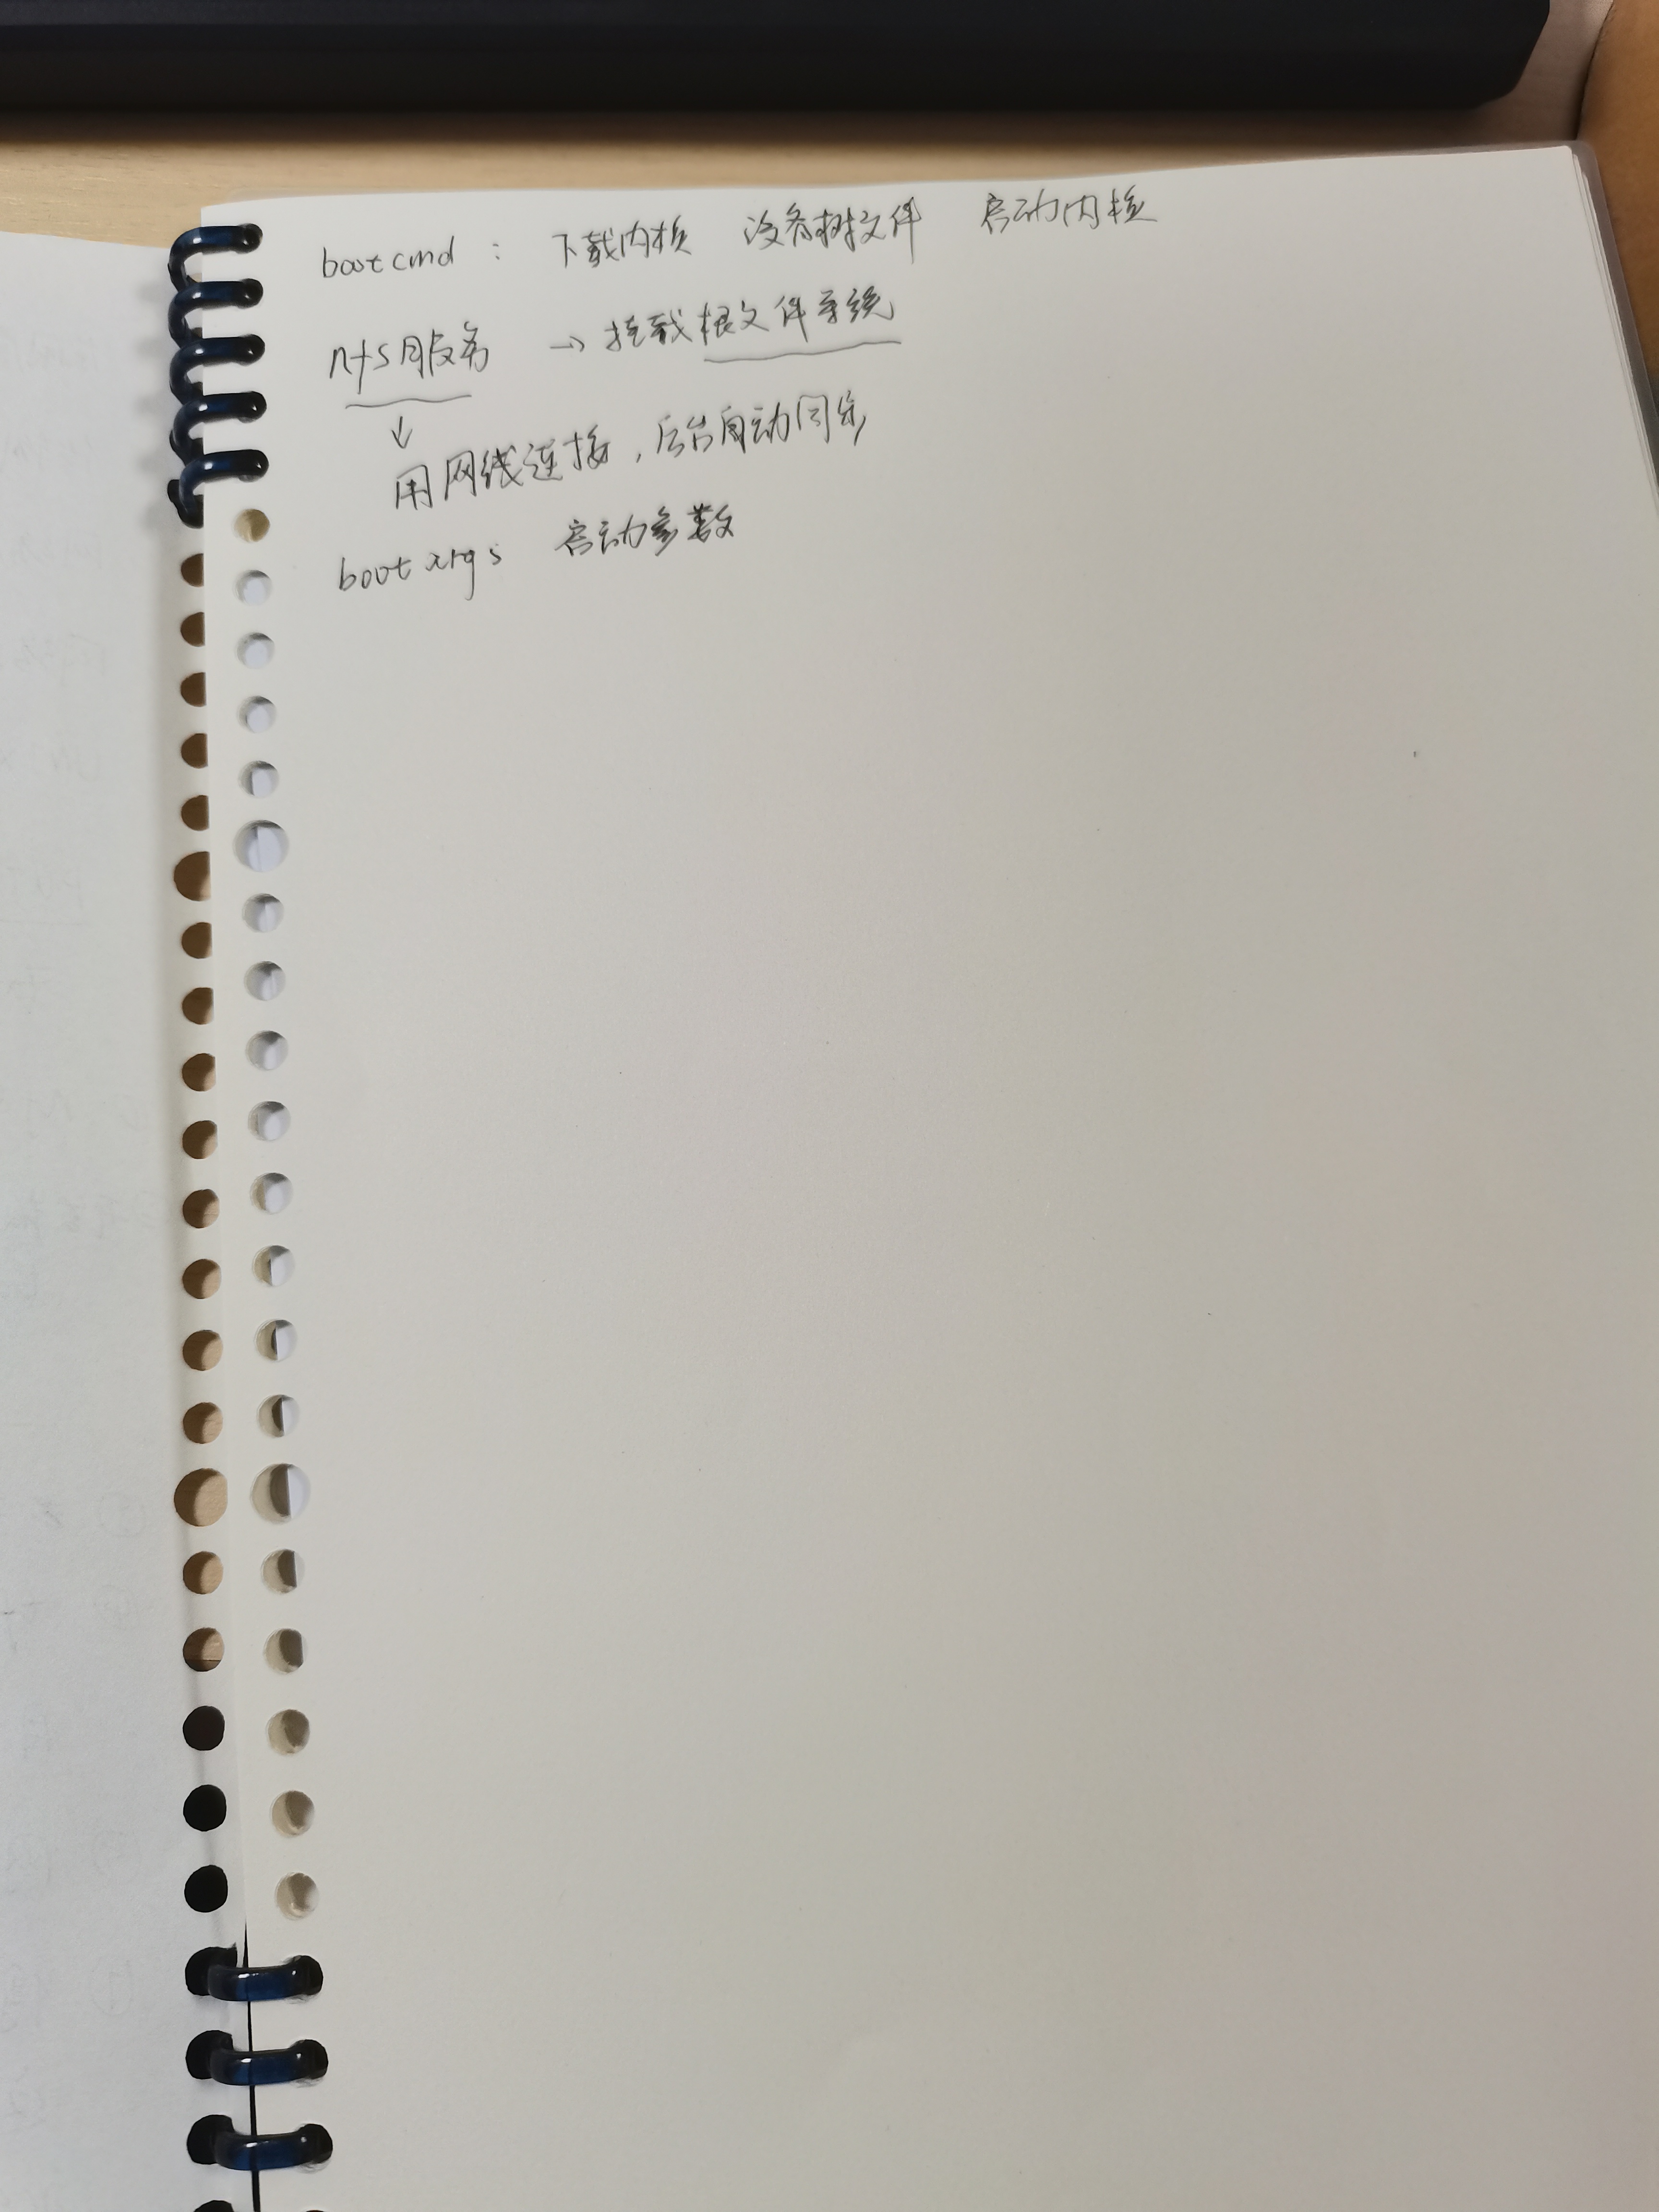 bootcmd : 下载内核 设备树文件 启动内核
nfs服务 → 挂载根文件系统
↓
用网线连接，后台自动同步
bootargs 启动参数